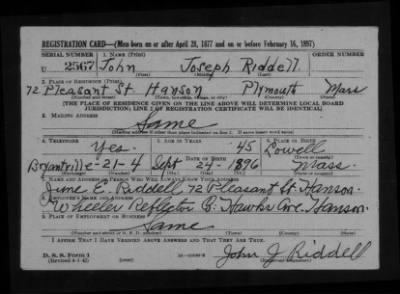 REGISTRATION CARD—(Men born on or after April 28, 1877 and on or before February 16, 1897)
SERIAL NUMBER 1. NAME (Print)
U 2567 John Joseph Riddell
(First) (Middle) (Last)
2. PLACE OF RESIDENCE (Print)
72 Pleasant St. Hanson Plymouth Mass
(Number and street) (Town, township, village, or city) (County) (State)
[THE PLACE OF RESIDENCE GIVEN ON THE LINE ABOVE WILL DETERMINE LOCAL BOARD
JURISDICTION; LINE 2 OF REGISTRATION CERTIFICATE WILL BE IDENTICAL]
3. MAILING ADDRESS
Same
[Mailing address if other than place indicated on line 2. If same insert word same]
4. TELEPHONE 5. AGE IN YEARS 6. PLACE OF BIRTH
Yes. 45 Lowell
DATE OF BIRTH (Town or county)
Bryantville-21-4 Sept 24- 1896 Mass.
(Exchange) (Number) (Mo.) (Day) (Yr.) (State or country)
7. NAME AND ADDRESS OF PERSON WHO WILL ALWAYS KNOW YOUR ADDRESS
June E. Riddell 72 Pleasant St Hanson
8. EMPLOYER'S NAME AND ADDRESS
Wheeler Reflector Co. Hawks Ave. Hanson.
9. PLACE OF EMPLOYMENT OR BUSINESS
Same
(Number and street or R. F. D. number) (Town) (County) (State)
I AFFIRM THAT I HAVE VERIFIED ABOVE ANSWERS AND THAT THEY ARE TRUE.
D. S. S. Form 1
(Revised 4-1-42) John J Riddell